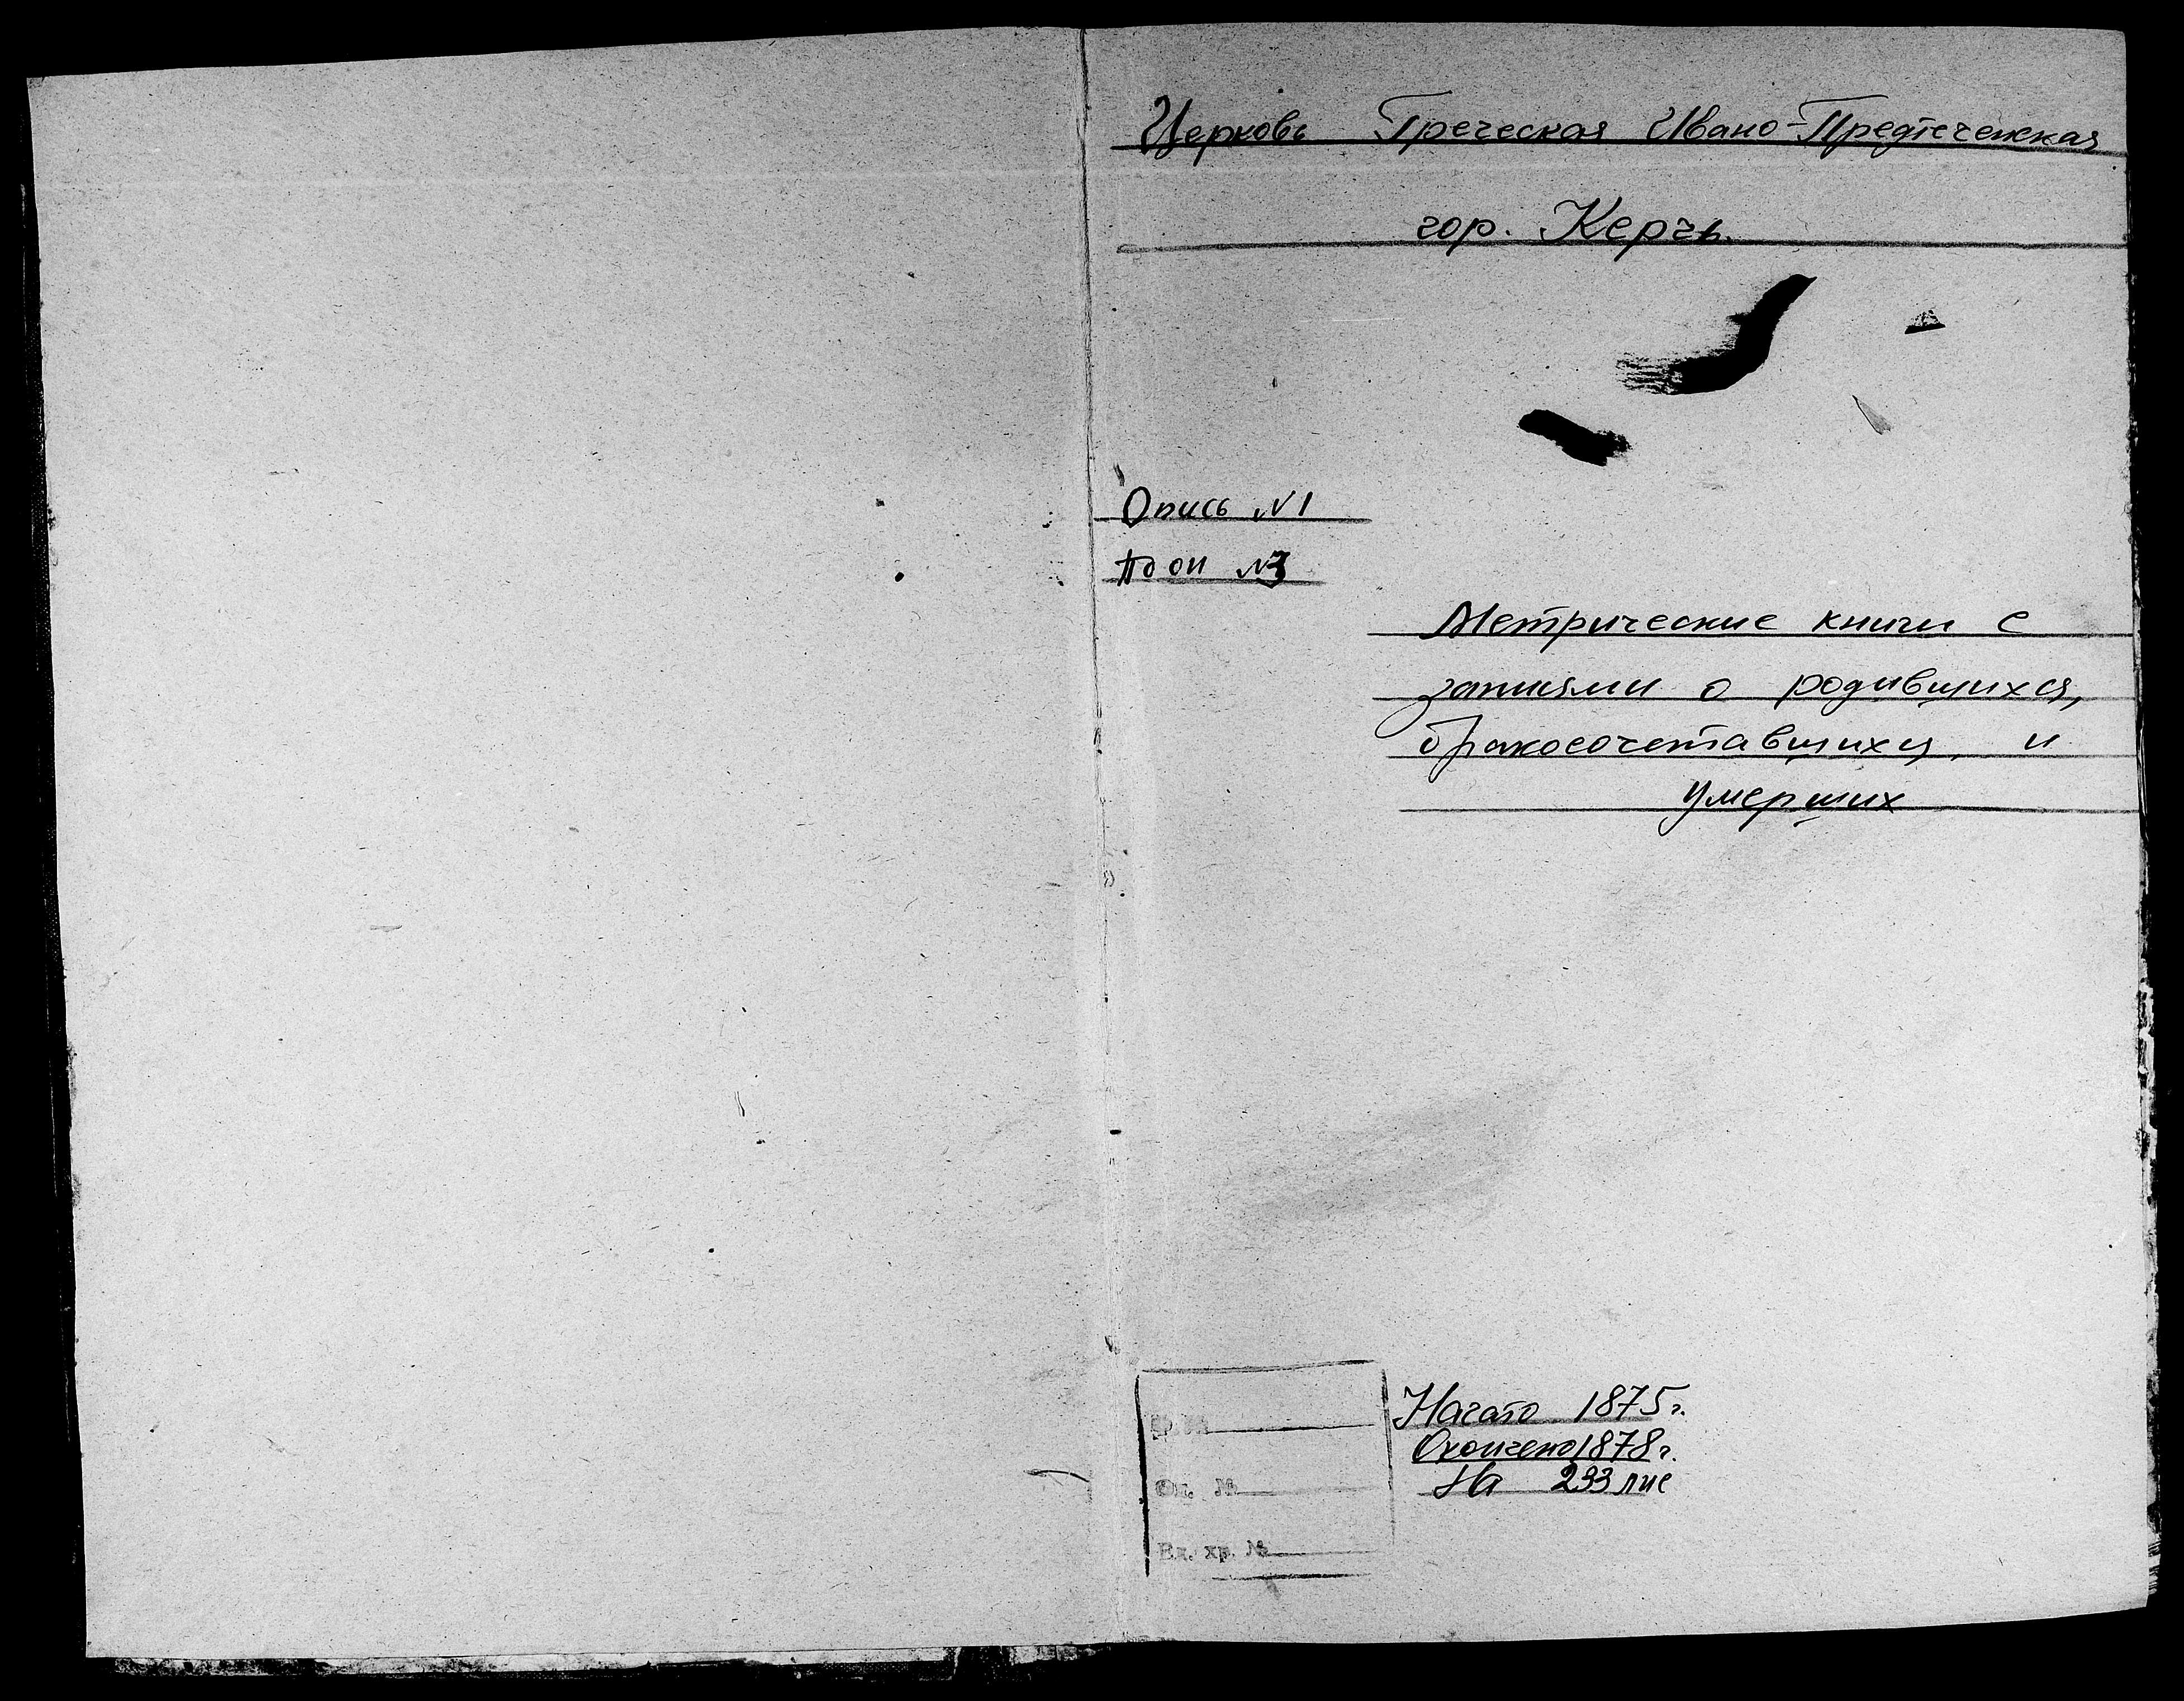 Церковь Греческая Ивано-Предтеченская
гор. Керчь.
Опись №1
№3
Метрические книги с
записями о родившихся,
бракосочетавшихся, и
умерших
Начато 1875г.
Окончено 1878г.
На 233 лис
Оп. №
Ед. хр. №